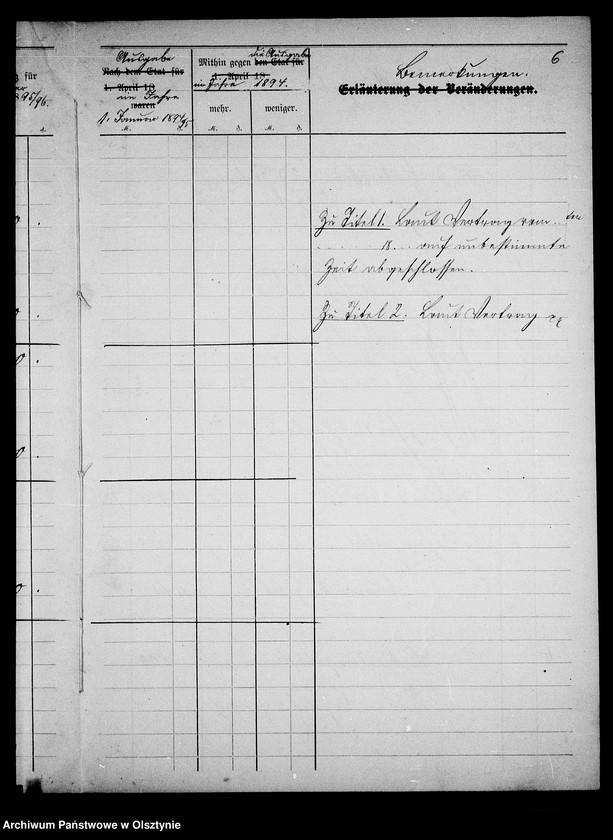 6
für
1895/96.
Ausgabe
Nach dem Etat für
1. April 18
im Jahre
waren
1. Januar 1894/95
M.
Mithin gegen die Ausgabe
den Etat für
1. April 18
im Jahre 1894.
mehr.
weniger.
M.
M.
Bemerkungen.
Erläuterung der Veränderungen.
Zu Titel 1. Laut Vertrag vom ... ten
18 .. auf unbestimmte
Zeit abgeschlossen.
Zu Titel 2. Laut Vertrag
Archiwum Państwowe w Olsztynie